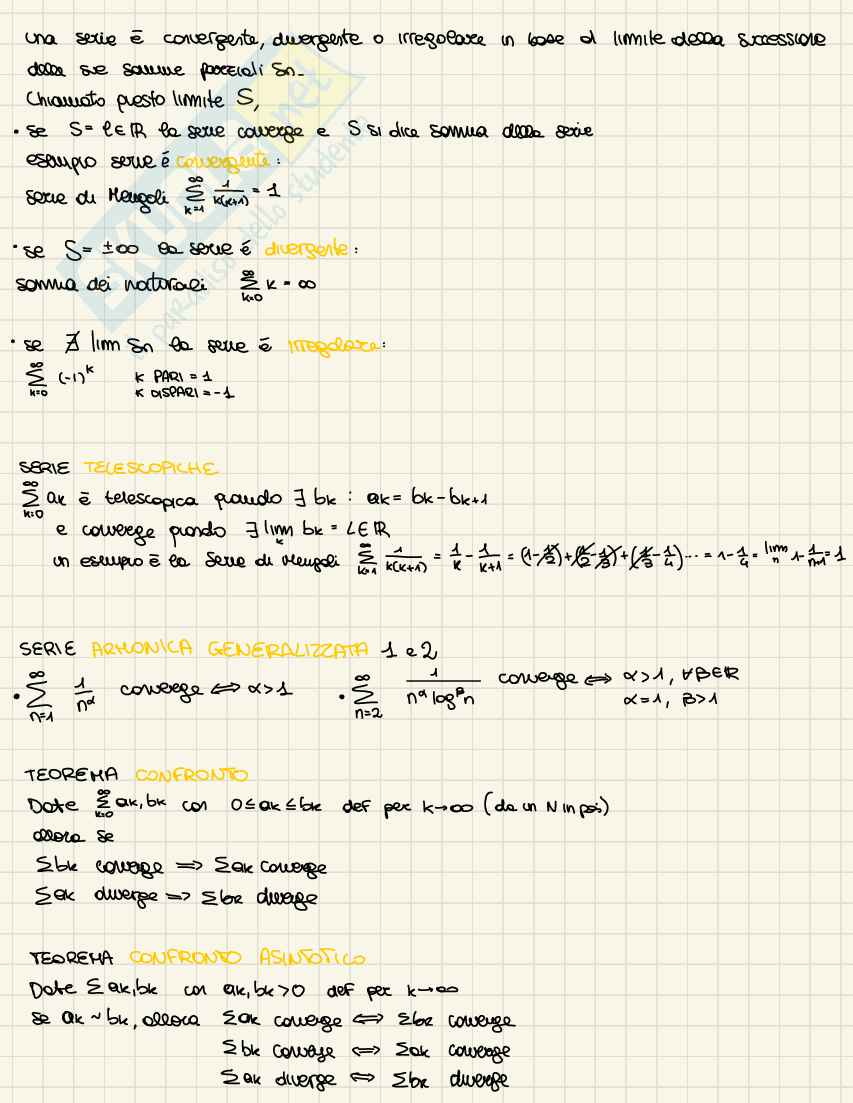 una serie è convergente, divergente o irregolare in base al limite della successione
delle sue somme parziali Sn.
Chiamato questo limite S,
• se S = ℓ ∈ ℝ la serie converge e S si dice somma della serie
esempio serie è convergente:
serie di Mengoli ∞ Σ k=1 1/k(k+1) = 1
• se S = ±∞ la serie è divergente:
somma dei naturali ∞ Σ k=0 k = ∞
• se ∄ lim Sn la serie è irregolare:
∞ Σ k=0 (-1)^k k PARI = 1
k DISPARI = -1
SERIE TELESCOPICHE
∞ Σ k=0 ak è telescopica quando ∃ bk : ak = bk - bk+1
e converge quando ∃ lim k bk = L ∈ ℝ
un esempio è la serie di Mengoli ∞ Σ k=1 1/k(k+1) = 1/k - 1/k+1 = (1 - 1/2) + (1/2 - 1/3) + (1/3 - 1/4) ... = 1 - 1/4 = lim n 1 - 1/n+1 = 1
SERIE ARMONICA GENERALIZZATA 1 e 2
• ∞ Σ n=1 1/n^α converge ⟺ α>1 • ∞ Σ n=2 1/n^α log^β n converge ⟺ α>1, ∀β∈ℝ
α=1, β>1
TEOREMA CONFRONTO
Date ∞ Σ k=0 ak, bk con 0 ≤ ak ≤ bk def per k→∞ (da un N in poi)
allora se
Σbk converge ⟹ Σak converge
Σak diverge ⟹ Σbk diverge
TEOREMA CONFRONTO ASINTOTICO
Date Σ ak, bk con ak, bk > 0 def per k→∞
se ak ~ bk, allora Σak converge ⟺ Σbk converge
Σbk converge ⟺ Σak converge
Σak diverge ⟺ Σbk diverge